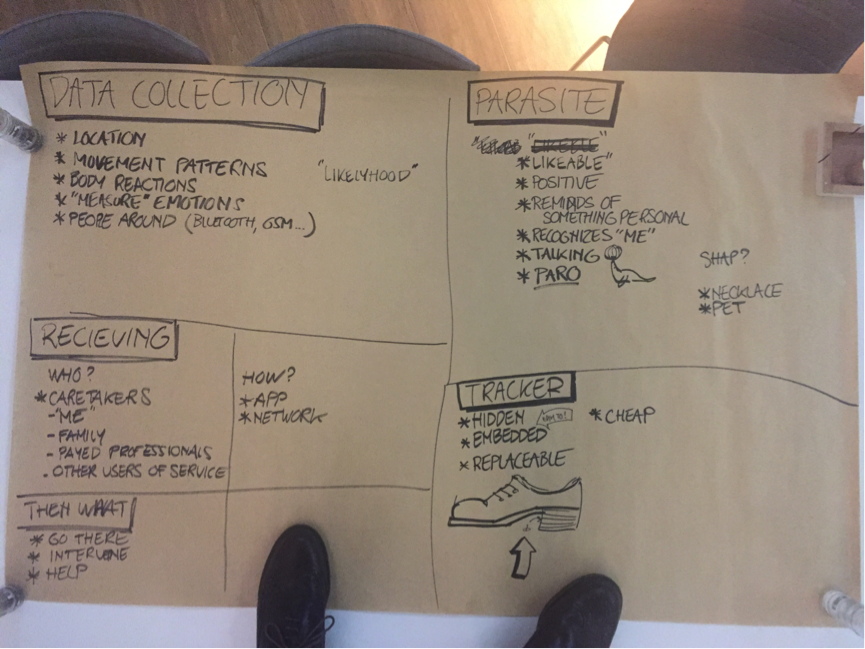 DATA COLLECTION
* LOCATION
* MOVEMENT PATTERNS
* BODY REACTIONS
* "MEASURE" EMOTIONS
* PEOPE AROUND (BLUETOOTH, GSM...)
"LIKELYHOOD"
PARASITE
* LIKEABLE"
* POSITIVE
* REMINDS OF
SOMETHING PERSONAL
* RECOGNIZES "ME"
* TALKING
* PARO
SHAP?
* NECKLACE
* PET
RECIEVING
WHO?
* CARETAKERS
- "ME"
- FAMILY
- PAYED PROFESSIONALS
- OTHER USERS OF SERVICE
HOW?
* APP
* NETWORK
TRACKER
* HIDDEN
* EMBEDDED
* REPLACEABLE
* CHEAP
THEN WHAT
* GO THERE
* INTERVENE
* HELP